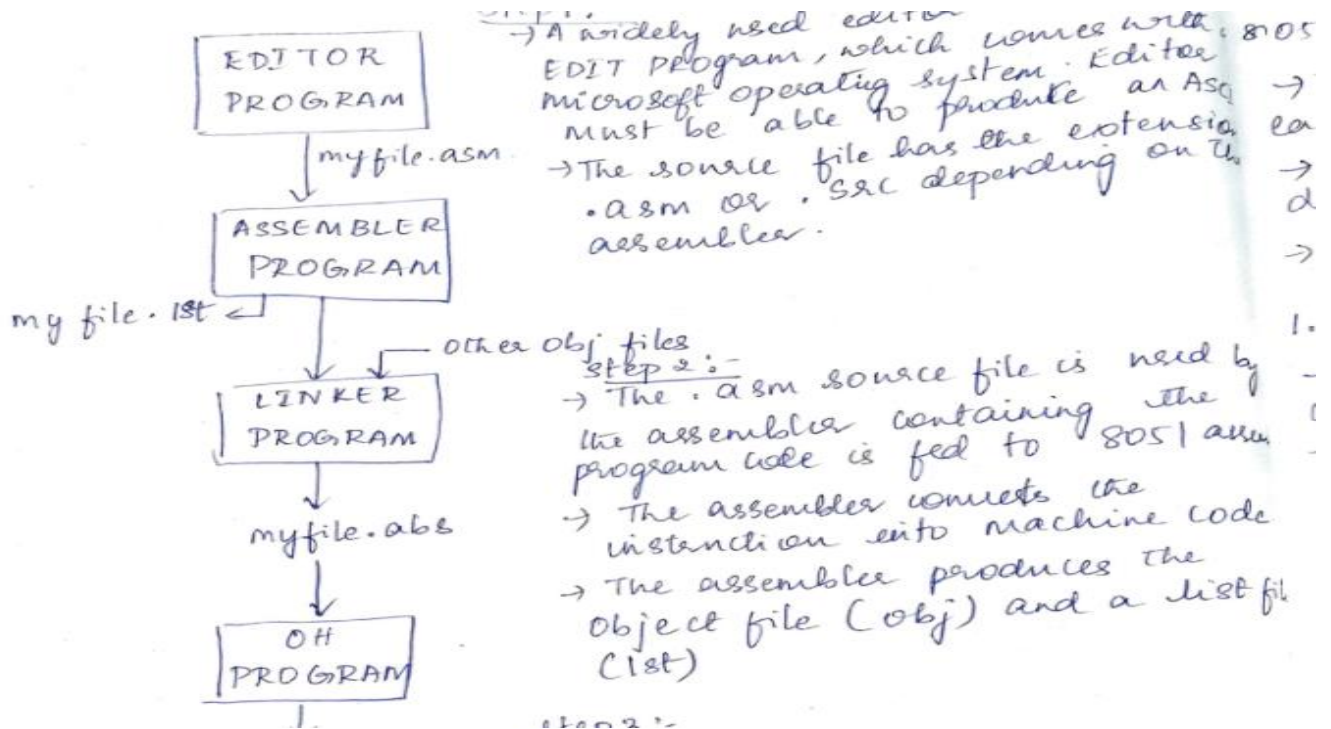 EDITOR
PROGRAM
myfile.asm
ASSEMBLER
PROGRAM
my file.lst
other obj files
LINKER
PROGRAM
myfile.abs
OH
PROGRAM
→ A widely used editor
EDIT PROgram, which comes with
microsoft operating system. Editor
must be able to produce an Asc
→ The source file has the extensio
.asm or .src depending on the
assembler.
step 2 :-
→ The .asm source file is used by
the assembler containing the
program code is fed to 8051 assem
→ The assembler converts the
instruction into machine code
→ The assembler produces the
object file (obj) and a list fil
(lst)
8051
→
ea
→
d
→
1.